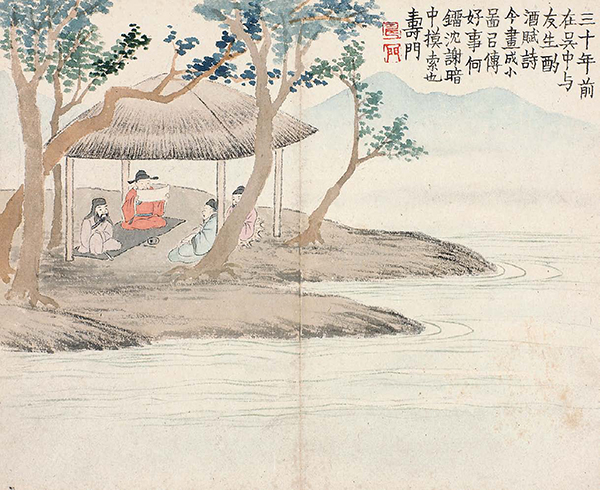 三十年前
在吴中与
友生酌
酒賦詩
今畫成小
啚㠯傳
好事何
鎦沈謝暗
中模索也
壽門